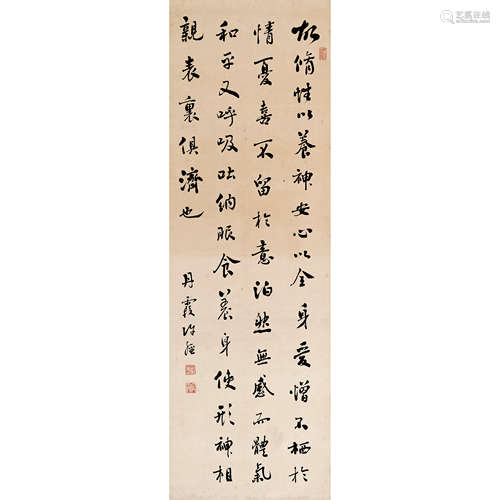 故脩性以養神安心以全身愛憎不栖於
情憂喜不留於意泊然無感而體氣
和平又呼吸吐納服食養身使形神相
親表裏俱濟也
丹霞